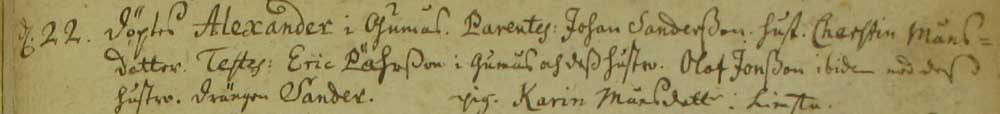 D. 22. döptes Alexander i Gumås. Parentes: Johan Sanderßon. hust. Cherstin Måns=
dotter. Testes: Eric Pährßon i Gumås och deß hustro. Olof Jonßon ibidem med deß
hustro. drängen Sander. pig. Karin Månsdotter i